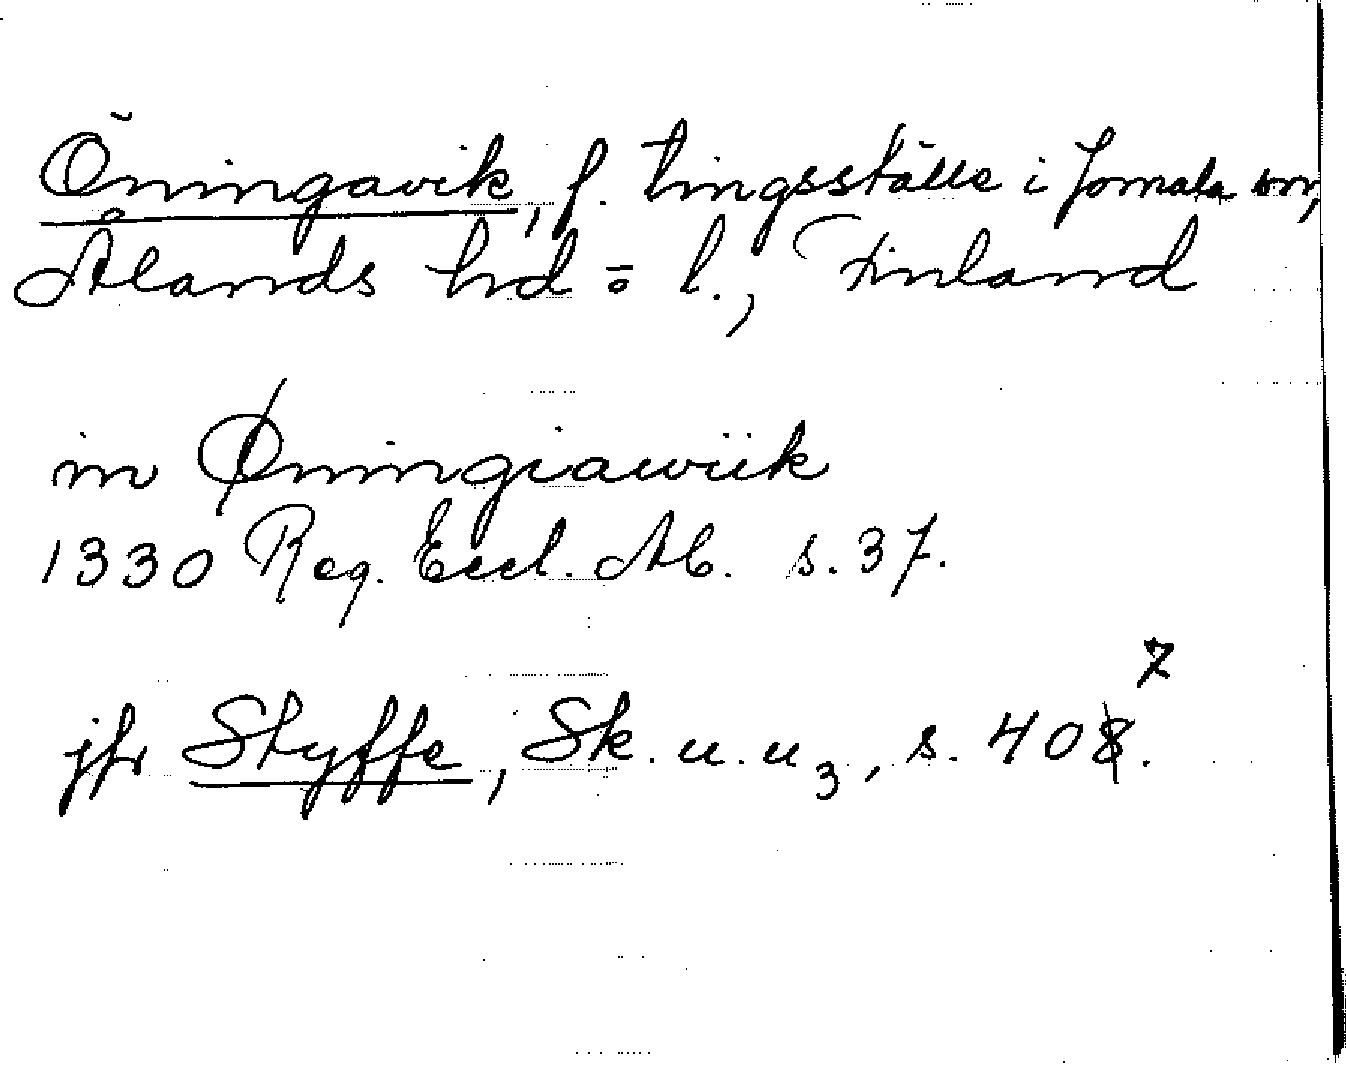 Öningavik, f. tingsställe i Jomala sn,
Ålands hd = l., Finland
in Øningiawiik
1330 Reg. Eccl. Ab. s. 37.
jfr Styffe, Sk. u. u 3, s. 407.